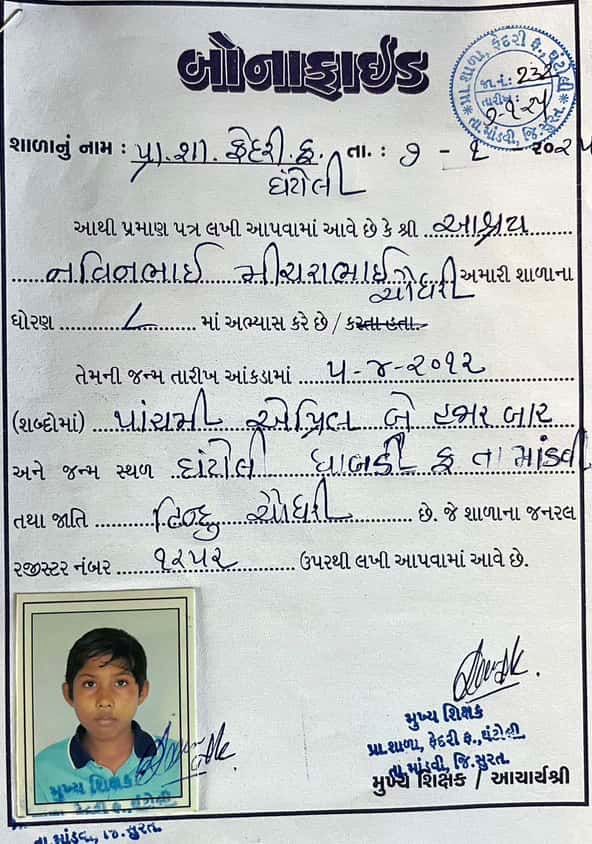 બોનાફાઇડ
પ્રા.શાળા, ફેદરી ફ., ઘંટોલી
જા.નં.: 232
તારીખ: ૭.૧.૨૫
તા.માંડવી, જિ.સુરત.
શાળાનું નામ : પ્રા.શા. ફેદરી.ફ. તા. : ૭ - ૧ - ૨૦૨૫
ઘંટોલી
આથી પ્રમાણ પત્ર લખી આપવામાં આવે છે કે શ્રી આશ્રય
નવિનભાઈ મીચરાભાઈ ચૌધરી અમારી શાળાના
ધોરણ ૮ માં અભ્યાસ કરે છે / કરતા હતા.
તેમની જન્મ તારીખ આંકડામાં ૫-૪-૨૦૧૨
(શબ્દોમાં) પાંચમી એપ્રિલ બે હજાર બાર
અને જન્મ સ્થળ ઘંટોલી ધાબડી ફ તા માંડવી
તથા જાતિ હિન્દુ ચૌધરી છે. જે શાળાના જનરલ
રજીસ્ટર નંબર ૧૨૫૨ ઉપરથી લખી આપવામાં આવે છે.
મુખ્ય શિક્ષક
પ્રા.શાળા, ફેદરી ફ., ઘંટોલી
તા.માંડવી, જિ.સુરત.
મુખ્ય શિક્ષક / આચાર્યશ્રી
મુખ્ય શિક્ષક
ફેદરી ફ., ઘંટોલી
તા.માંડવી, જિ.સુરત